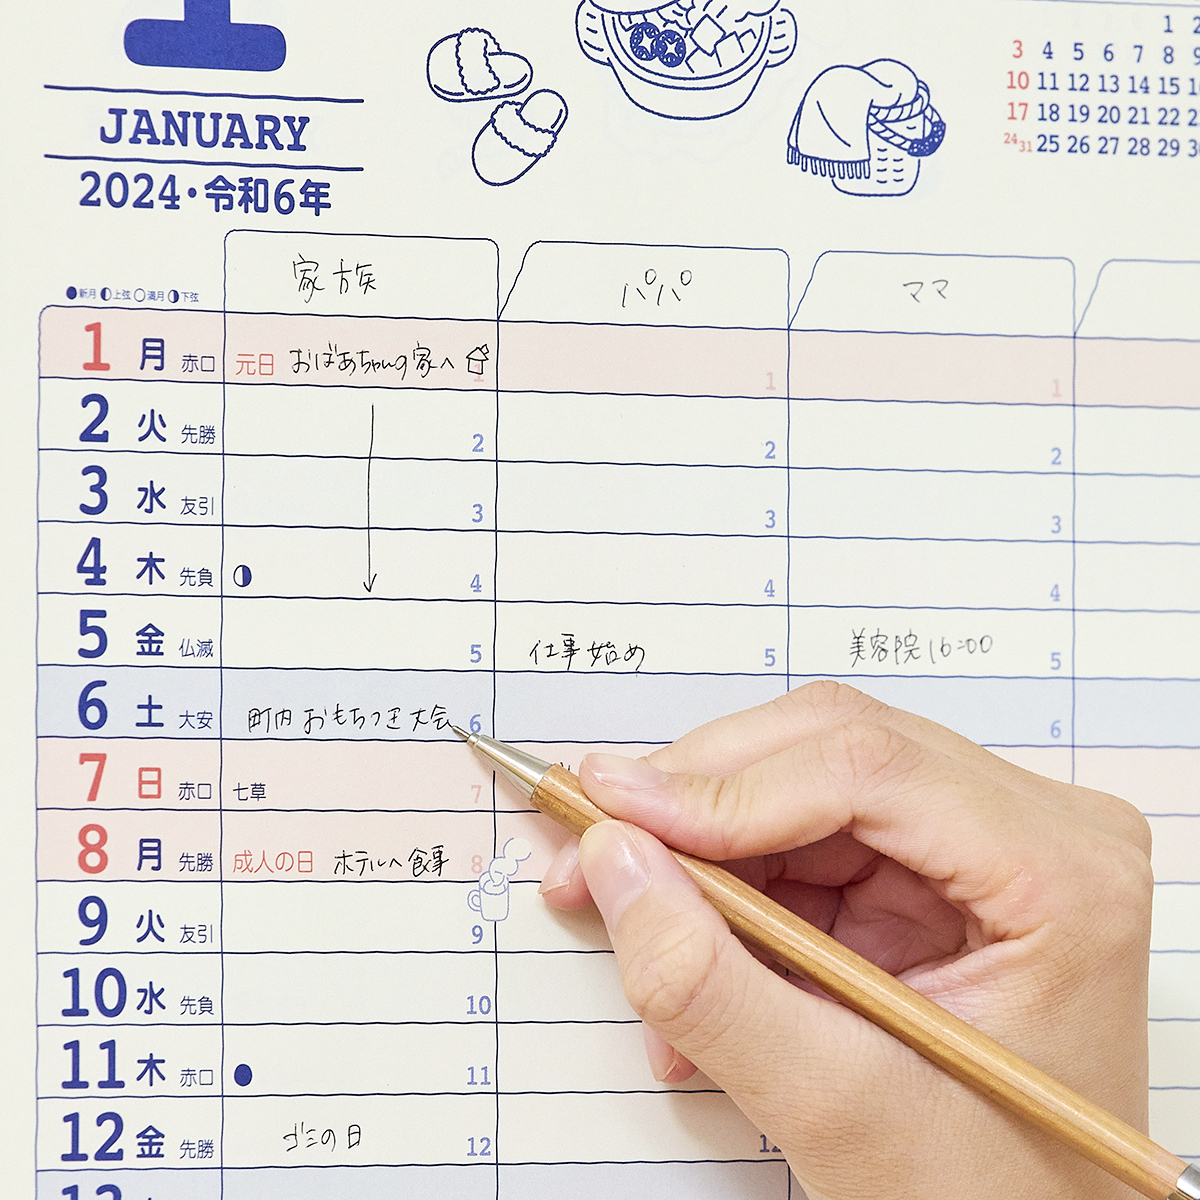 1
JANUARY
2024・令和6年
1 2
3 4 5 6 7 8 9
10 11 12 13 14 15 16
17 18 19 20 21 22
24 31 25 26 27 28 29 30
新月 上弦 満月 下弦
家族 パパ ママ
1 月 赤口 元日 おばあちゃんの家へ 1 1 1
2 火 先勝 2 2 2
3 水 友引 3 3 3
4 木 先負 4 4 4
5 金 仏滅 5 仕事始め 5 美容院 16:00 5
6 土 大安 町内おもちつき大会 6 6
7 日 赤口 七草 7
8 月 先勝 成人の日 ホテルへ食事 8
9 火 友引 9
10 水 先負 10
11 木 赤口 11
12 金 先勝 ゴミの日 12 12
13